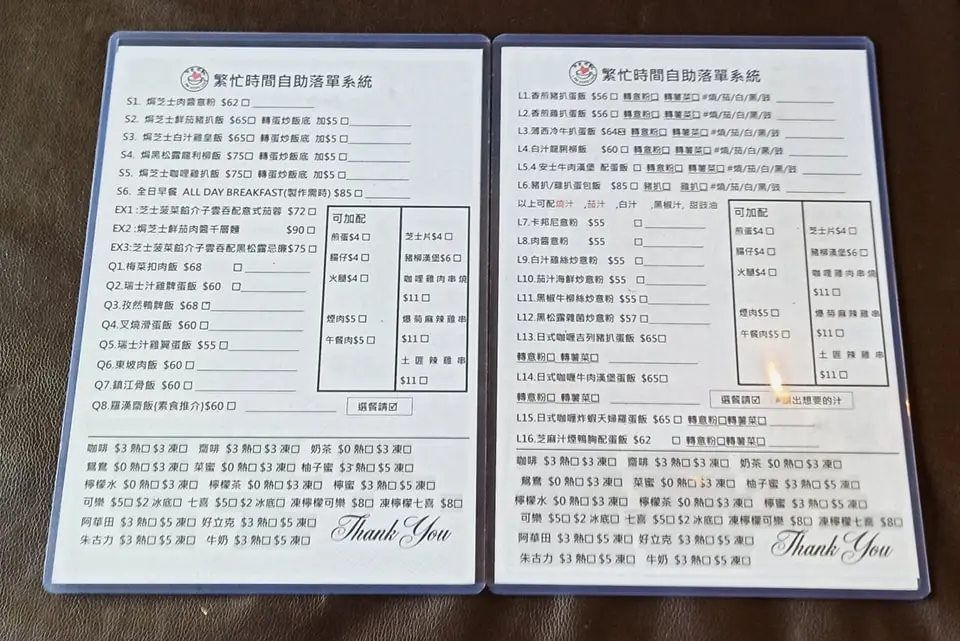 繁忙時間自助落單系統
S1. 焗芝士肉醬意粉 $62□
S2. 焗芝士鮮茄豬扒飯 $65□ 轉蛋炒飯底 加$5□
S3. 焗芝士白汁雞皇飯 $65□ 轉蛋炒飯底 加$5□
S4. 焗黑松露龍利柳飯 $75□ 轉蛋炒飯底 加$5□
S5. 焗芝士咖哩雞扒飯 $75□ 轉蛋炒飯底 加$5□
S6. 全日早餐 ALL DAY BREAKFAST(製作需時) $85□
EX1:芝士菠菜餡介子雲吞配意式茄蓉 $72□
EX2:焗芝士鮮茄肉醬千層麵 $90□
EX3:芝士菠菜餡介子雲吞配黑松露忌廉$75□
Q1.梅菜扣肉飯 $68 □
Q2.瑞士汁雞牌蛋飯 $60 □
Q3.孜然鴨牌飯 $68□
Q4.叉燒滑蛋飯 $60□
Q5.瑞士汁雞翼蛋飯 $55□
Q6.東坡肉飯 $60□
Q7.鎮江骨飯 $60□
Q8.羅漢齋飯(素食推介)$60□
可加配
煎蛋$4□ 芝士片$4□
腸仔$4□ 豬柳漢堡$6□
火腿$4□ 咖哩雞肉串燒
$11□
煙肉$5□ 爆菊麻辣雞串
午餐肉$5□ $11□
土匪辣雞串
$11□
選餐請☑
咖啡 $3 熱□$3 凍□ 齋啡 $3 熱□$3 凍□ 奶茶 $0 熱□$3 凍□
鴛鴦 $0 熱□$3 凍□ 菜蜜 $0 熱□$3 凍□ 柚子蜜 $3 熱□$5 凍□
檸檬水 $0 熱□$3 凍□ 檸檬茶 $0 熱□$3 凍□ 檸蜜 $3 熱□$5 凍□
可樂 $5□$2 冰底□ 七喜 $5□$2 冰底□ 凍檸檬可樂 $8□ 凍檸檬七喜 $8□
阿華田 $3 熱□$5 凍□ 好立克 $3 熱□$5 凍□
朱古力 $3 熱□$5 凍□ 牛奶 $3 熱□$5 凍□
Thank You
繁忙時間自助落單系統
L1.香煎豬扒蛋飯 $56□ 轉意粉□ 轉薯菜□ #燒/茄/白/黑/豉
L2.香煎雞扒蛋飯 $56□ 轉意粉□ 轉薯菜□ #燒/茄/白/黑/豉
L3.薄西冷牛扒蛋飯 $64□ 轉意粉□ 轉薯菜□ #燒/茄/白/黑/豉
L4.白汁龍脷柳飯 $60□ 轉意粉□ 轉薯菜□ #燒/茄/白/黑/豉
L5.4 安士牛肉漢堡 配蛋飯□ 轉意粉□ 轉薯菜□ #燒/茄/白/黑/豉
L6.豬扒/雞扒蛋包飯 $85□ 豬扒□ 雞扒□ #燒/茄/白/黑/豉
以上可配燒汁 ,茄汁 ,白汁 ,黑椒汁, 甜豉油
L7.卡邦尼意粉 $55 □
L8.肉醬意粉 $55 □
L9.白汁雞絲炒意粉 $55 □
L10.茄汁海鮮炒意粉 $55 □
L11.黑椒牛柳絲炒意粉 $55□
L12.黑松露雜菌炒意粉 $57□
L13.日式咖喱吉列豬扒蛋飯 $65□
轉意粉□ 轉薯菜□
L14.日式咖喱牛肉漢堡蛋飯 $65□
轉意粉□ 轉薯菜□
可加配
煎蛋$4□ 芝士片$4□
腸仔$4□ 豬柳漢堡$6□
火腿$4□ 咖哩雞肉串燒
$11□
煙肉$5□ 爆菊麻辣雞串
午餐肉$5□ $11□
土匪辣雞串
$11□
選餐請☑ 出想要的汁
L15.日式咖喱炸蝦天婦羅蛋飯 $65□ 轉意粉□轉薯菜□
L16.芝麻汁煙鴨胸配蛋飯 $62 □ 轉意粉□轉薯菜□
咖啡 $3 熱□$3 凍□ 齋啡 $3 熱□$3 凍□ 奶茶 $0 熱□$3 凍□
鴛鴦 $0 熱□$3 凍□ 菜蜜 $0 熱□$3 凍□ 柚子蜜 $3 熱□$5 凍□
檸檬水 $0 熱□$3 凍□ 檸檬茶 $0 熱□$3 凍□ 檸蜜 $3 熱□$5 凍□
可樂 $5□$2 冰底□ 七喜 $5□$2 冰底□ 凍檸檬可樂 $8□ 凍檸檬七喜 $8□
阿華田 $3 熱□$5 凍□ 好立克 $3 熱□$5 凍□
朱古力 $3 熱□$5 凍□ 牛奶 $3 熱□$5 凍□
Thank You